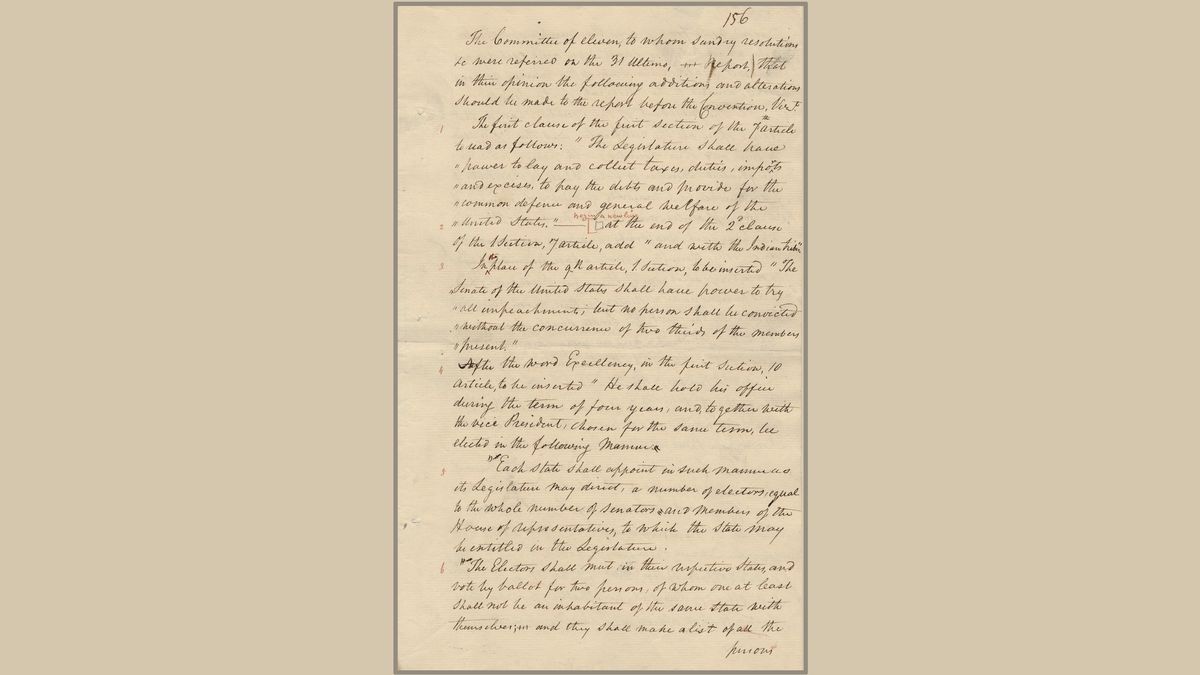 156
The Committee of eleven, to whom sundry resolutions
&c were referred on the 31 Ultimo, Report, that
in their opinion the following additions and alterations
should be made to the report before the Convention, Vizt.
1 The first clause of the first section of the 7th article
to read as follows: "The Legislature shall have
"power to lay and collect taxes, duties, imposts
"and excises, to pay the debts and provide for the
"common defence and general welfare of the
begin a new line
2 "United States." at the end of the 2d clause
of the 1 Section, 7 article, add "and with the Indian tribes"
3 In the place of the 9th article, 1 Section, to be inserted "The
"Senate of the United States shall have power to try
"all impeachments; but no person shall be convicted
"without the concurrence of two thirds of the members
"present."
4 After the word Excellency, in the first Section, 10
Article, to be inserted "He shall hold his office
during the term of four years, and, together with
the vice President, chosen for the same term, be
elected in the following Manner.
5 "Each state shall appoint in such manner as
its Legislature may direct, a number of electors, equal
to the whole number of senators and members of the
House of representatives, to which the State may
be entitled in the Legislature.
6 "The Electors shall meet in their respective States, and
vote by ballot for two persons, of whom one at least
shall not be an inhabitant of the same State with
themselves; and they shall make a list of all the
persons